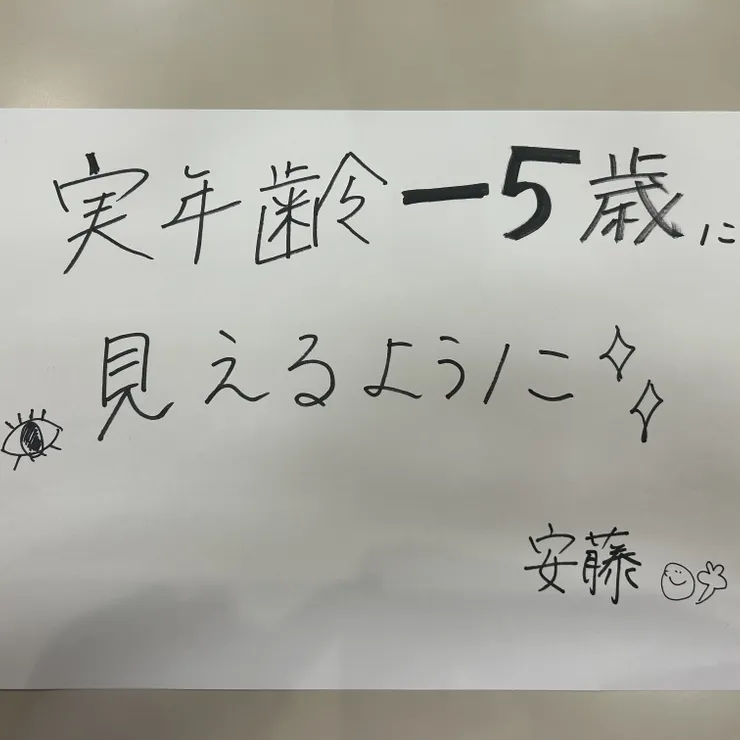 実年齢ー5歳に
見えるように
安藤